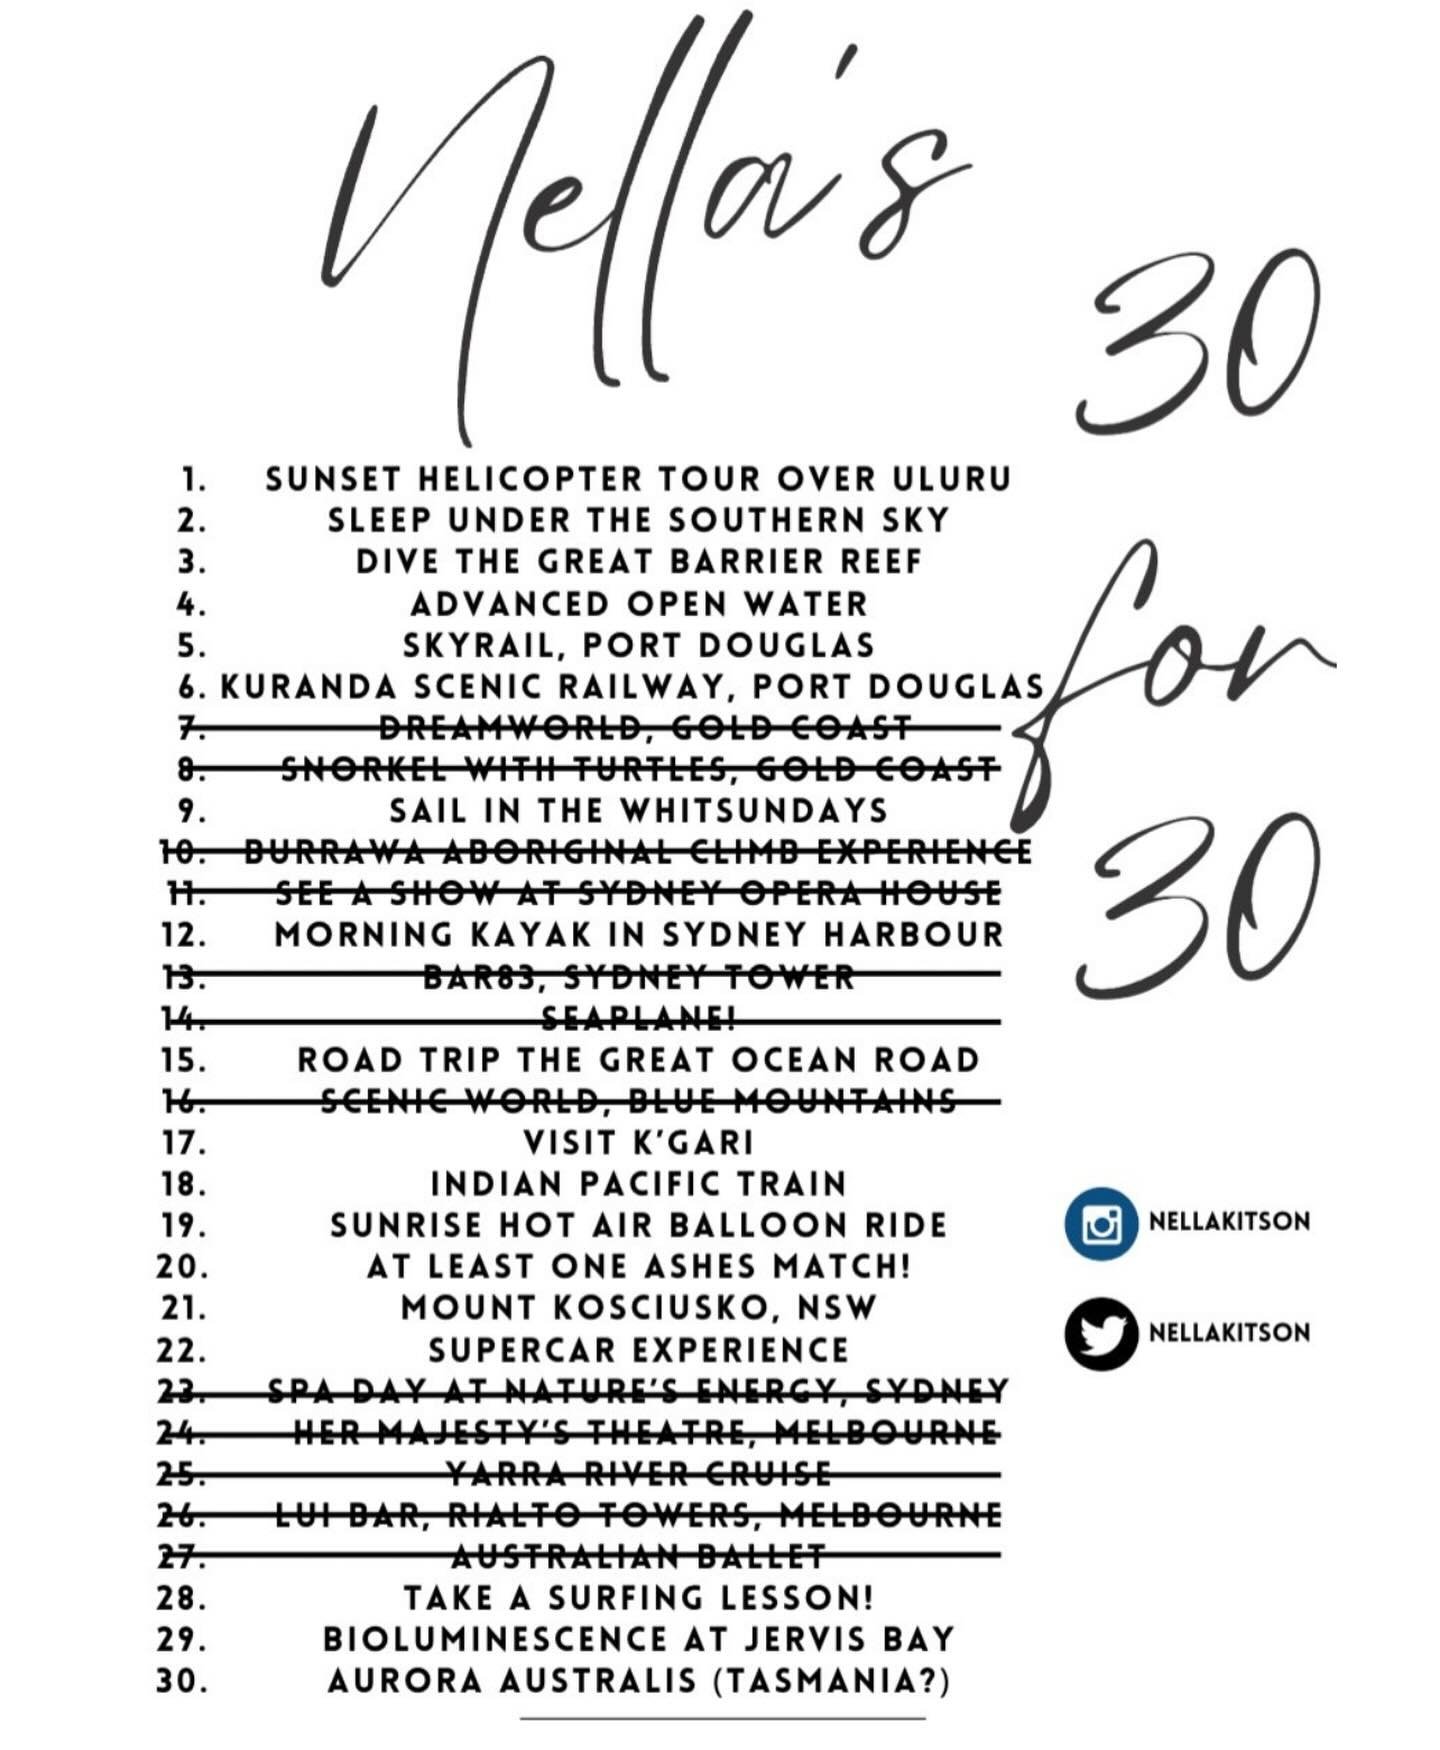 Nella's
30
for
30
1. SUNSET HELICOPTER TOUR OVER ULURU
2. SLEEP UNDER THE SOUTHERN SKY
3. DIVE THE GREAT BARRIER REEF
4. ADVANCED OPEN WATER
5. SKYRAIL, PORT DOUGLAS
6. KURANDA SCENIC RAILWAY, PORT DOUGLAS
7. DREAMWORLD, GOLD COAST
8. SNORKEL WITH TURTLES, GOLD COAST
9. SAIL IN THE WHITSUNDAYS
10. BURRAWA ABORIGINAL CLIMB EXPERIENCE
11. SEE A SHOW AT SYDNEY OPERA HOUSE
12. MORNING KAYAK IN SYDNEY HARBOUR
13. BAR83, SYDNEY TOWER
14. SEAPLANE!
15. ROAD TRIP THE GREAT OCEAN ROAD
16. SCENIC WORLD, BLUE MOUNTAINS
17. VISIT K'GARI
18. INDIAN PACIFIC TRAIN
19. SUNRISE HOT AIR BALLOON RIDE
20. AT LEAST ONE ASHES MATCH!
21. MOUNT KOSCIUSKO, NSW
22. SUPERCAR EXPERIENCE
23. SPA DAY AT NATURE'S ENERGY, SYDNEY
24. HER MAJESTY'S THEATRE, MELBOURNE
25. YARRA RIVER CRUISE
26. LUI BAR, RIALTO TOWERS, MELBOURNE
27. AUSTRALIAN BALLET
28. TAKE A SURFING LESSON!
29. BIOLUMINESCENCE AT JERVIS BAY
30. AURORA AUSTRALIS (TASMANIA?)
NELLAKITSON
NELLAKITSON